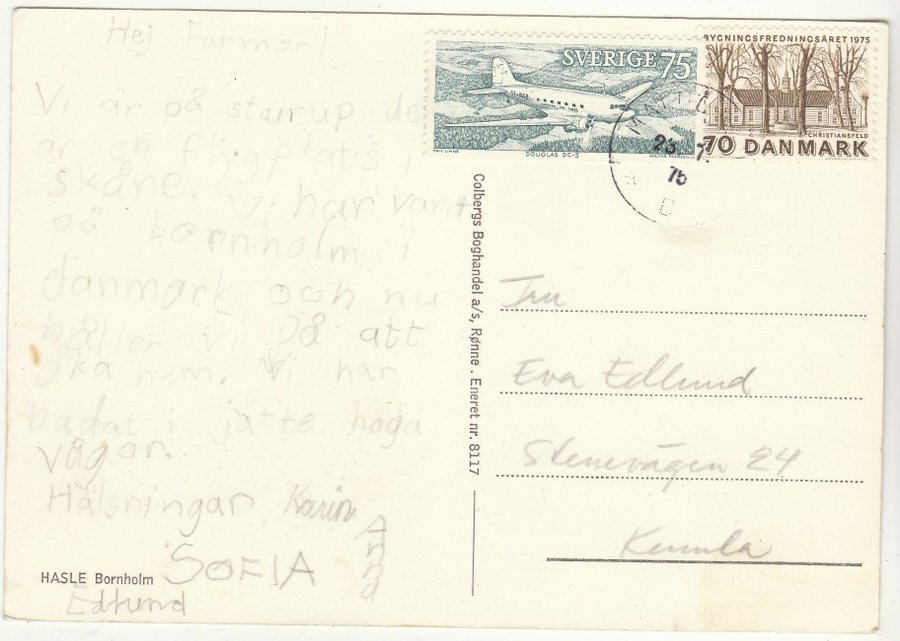 Hej Farmor!
Vi är på sturup det
är en flygplats i
skåne. Vi har varit
på bornholm i
danmark och nu
håller vi på att
åka hem. Vi har
badat i jätte höga
vågor.
Hälsningar Karin
Anna
SOFIA
Edlund
HASLE Bornholm
Colbergs Boghandel a/s, Rønne . Eneret nr. 8117
SVERIGE 75
DOUGLAS DC-3
BYGNINGSFREDNINGSÅRET 1975
CHRISTIANSFELD
70 DANMARK
75
B
Eva Edlund
Stenevägen 24
Kumla